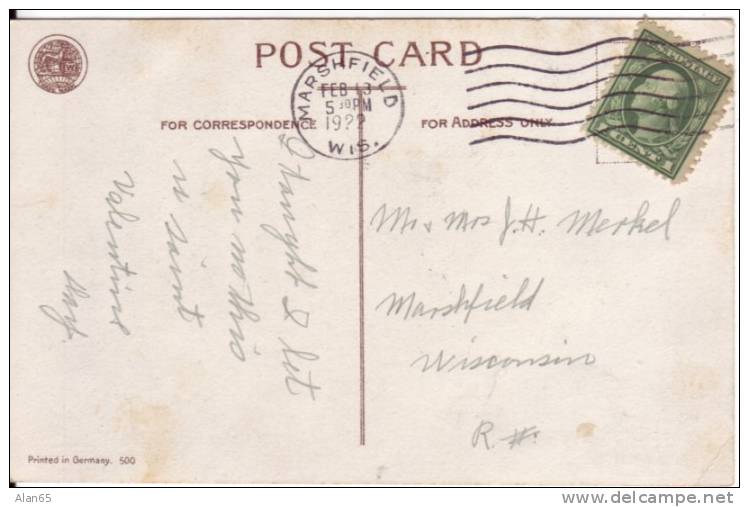 POST CARD
MARSHFIELD
FEB 13
5 30 PM
1922
WIS.
FOR CORRESPONDENCE
FOR ADDRESS ONLY.
I taught I let
you no this
is saint
Valentine
day.
Mr & Mrs J.H. Merkel
Marshfield
Wisconsin
R. #.
Printed in Germany. 500
Alan65
http://www.delcampe.net